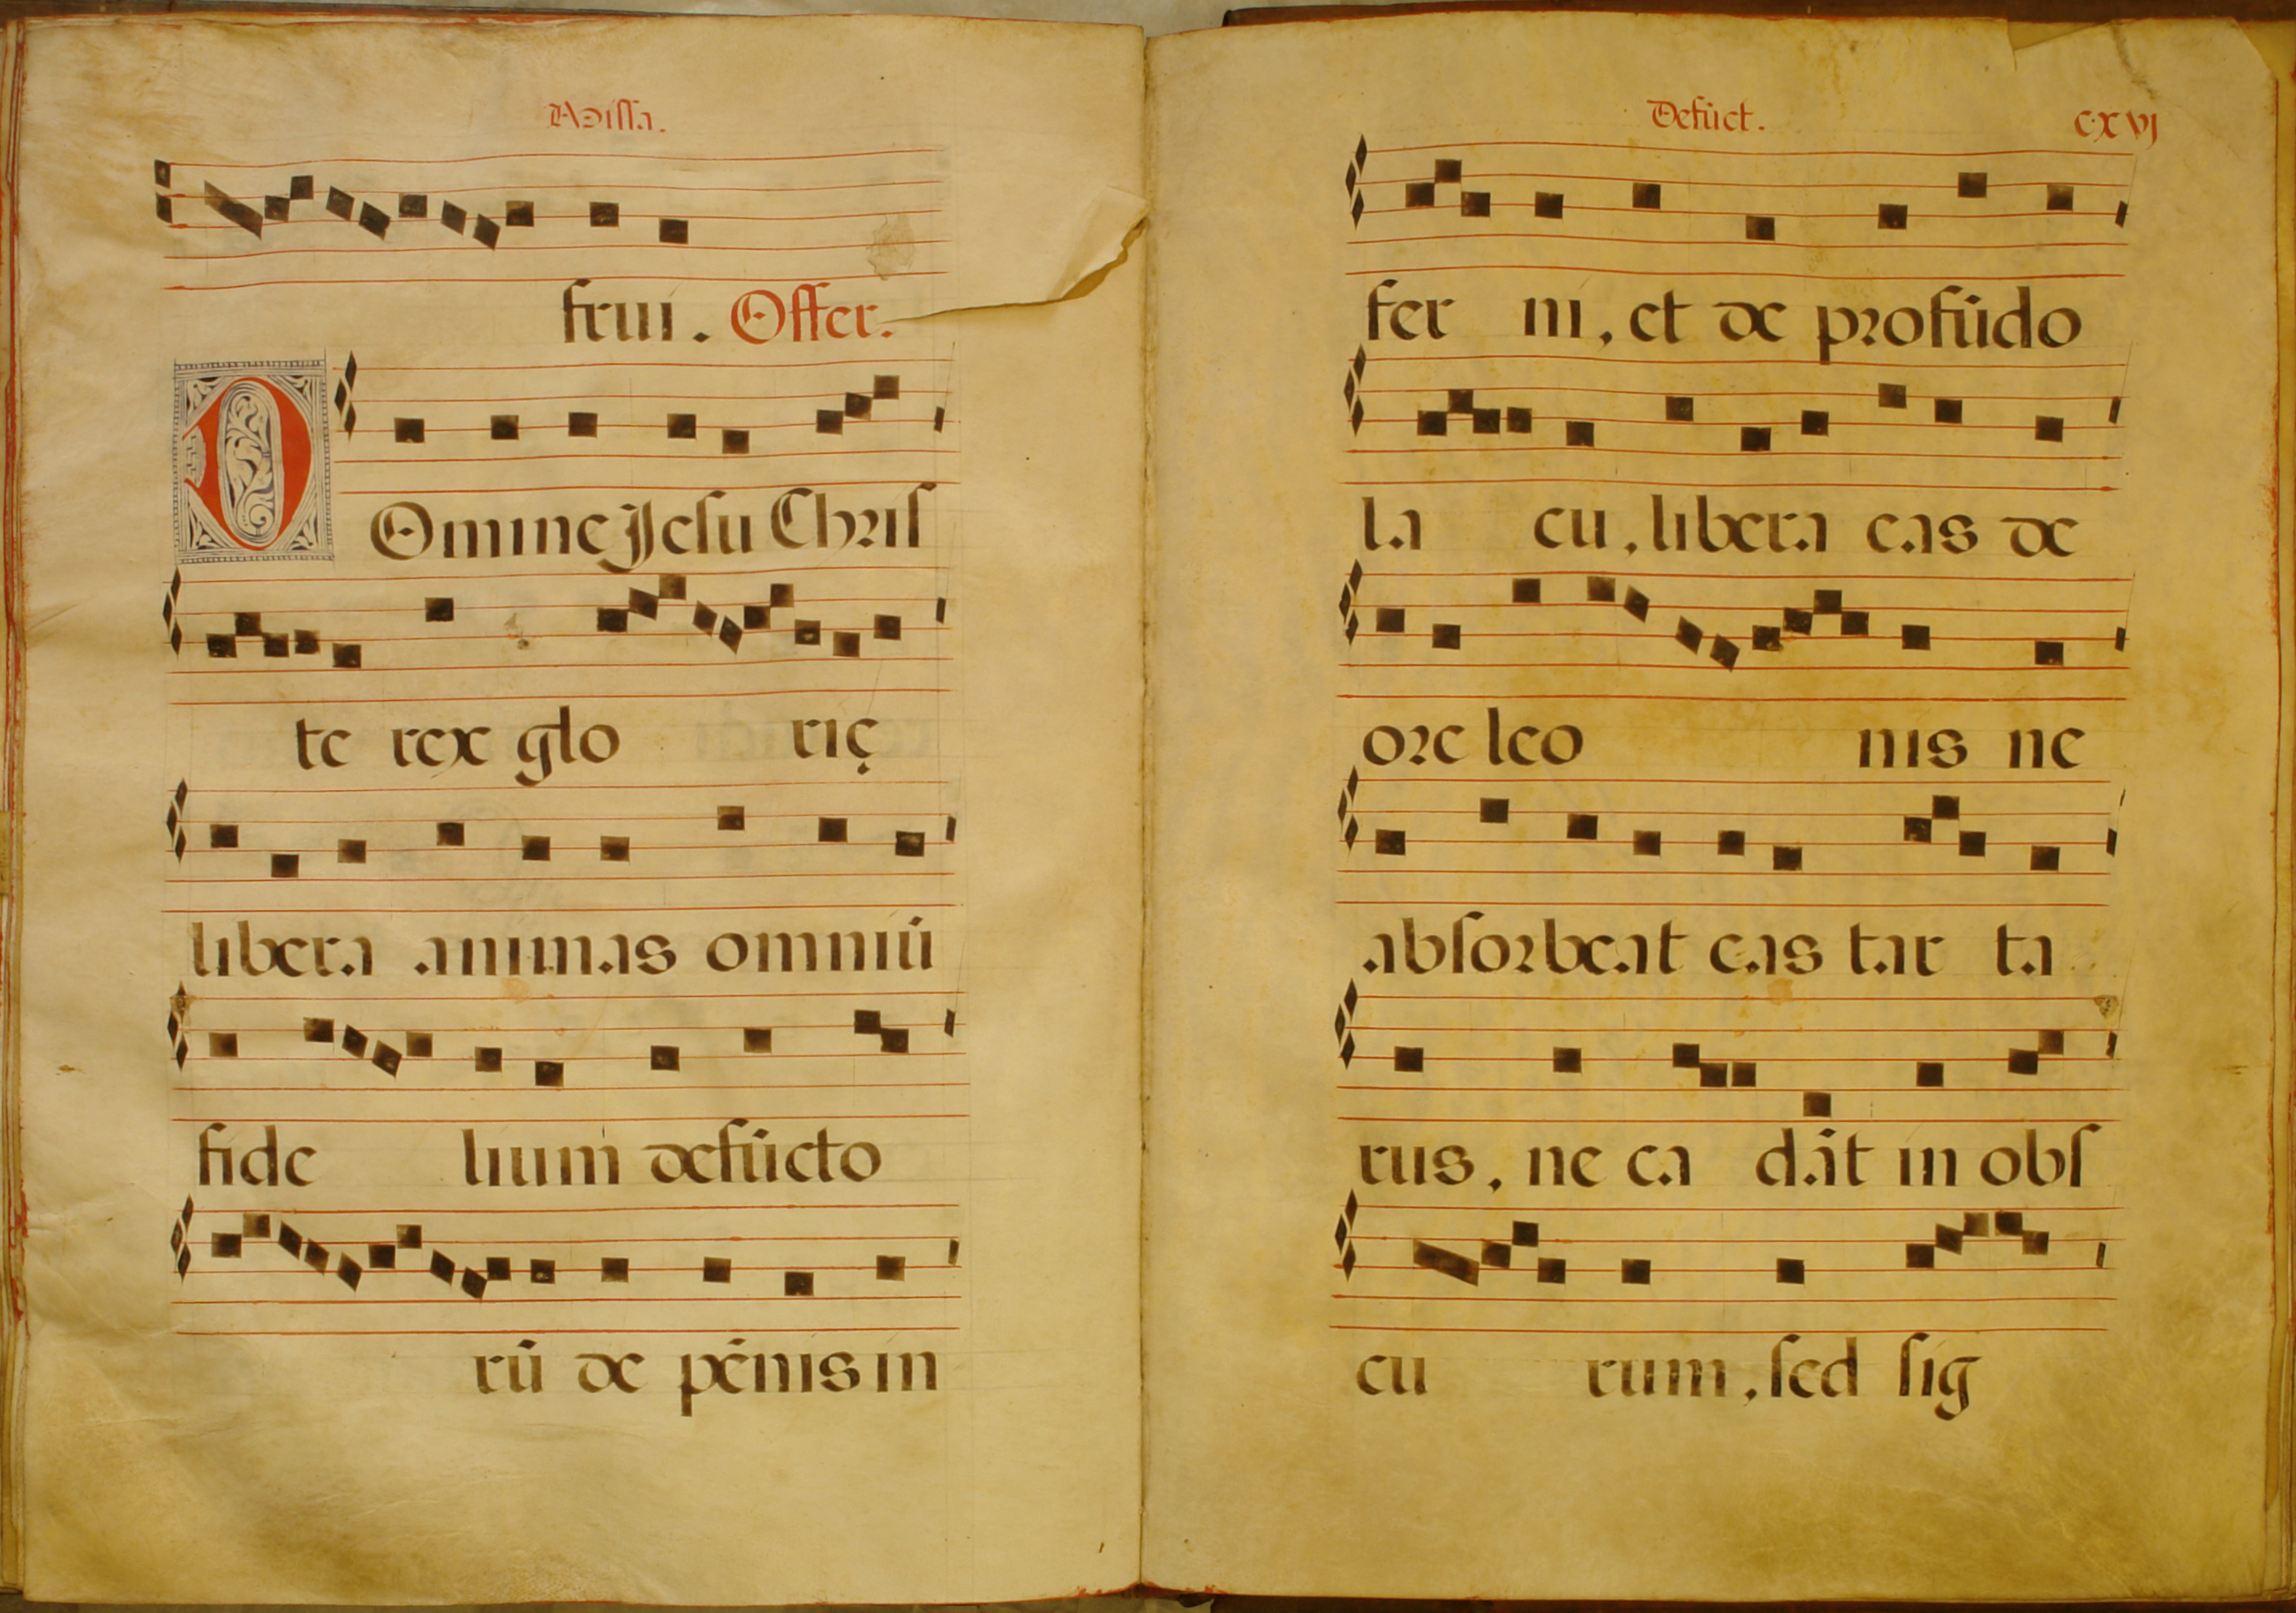 Missa.
frui. Offer.
DOmine Jesu Chriſ
te rex glo rię
libera animas omniū
fide lium defūcto
rū de pēnis in
Defūct. CXVJ
fer ni, et de profūdo
la cu, libera eas de
ore leo nis ne
abſorbeat eas tar ta
rus, ne ca dāt in obſ
cu rum, ſed ſig